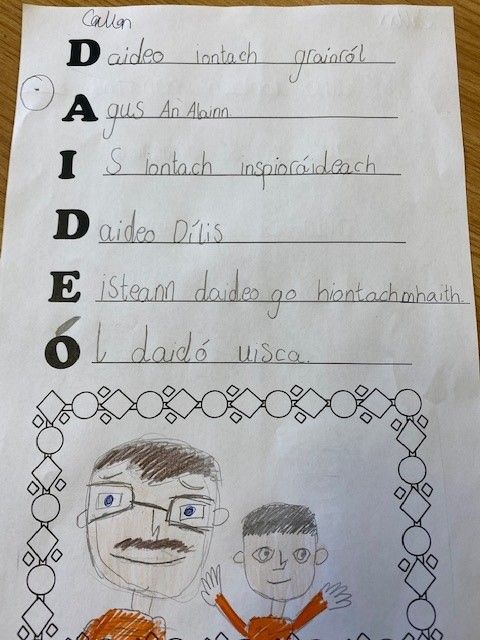 Callan
Daideo iontach grainról
Agus An Alainn.
IS iontach inspioráideach
Daideo Dílis
Eisteann daideo go hiontachmhaith.
Ól daidó uisca.